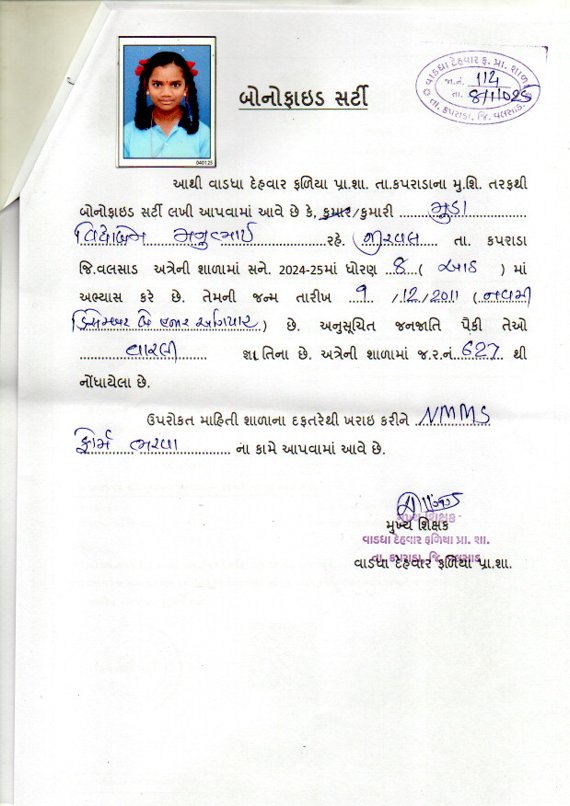 વાડધા દેહવાર ફ. પ્રા. શાળા
જા.નં. 114
તા. 8/1/025
તા. કપરાડા, જિ. વલસાડ.
040125
બોનોફાઇડ સર્ટી
આથી વાડધા દેહવાર ફળિયા પ્રા.શા. તા.કપરાડાના મુ.શિ. તરફથી
બોનોફાઇડ સર્ટી લખી આપવામાં આવે છે કે, કુમાર/કુમારી મુડા
મનુભાઈ રહે. તા. કપરાડા
જિ.વલસાડ અત્રેની શાળામાં સને. 2024-25માં ધોરણ 8 ( આઠ ) માં
અભ્યાસ કરે છે. તેમની જન્મ તારીખ 9 /12/2011 (નવમી
ડિસેમ્બર બે હજાર અગિયાર) છે. અનુસૂચિત જનજાતિ પૈકી તેઓ
વારલી જ્ઞાતિના છે. અત્રેની શાળામાં જ.ર.નં. 627 થી
નોંધાયેલા છે.
ઉપરોકત માહિતી શાળાના દફતરેથી ખરાઇ કરીને NMMS
ફોર્મ ભરવા ના કામે આપવામાં આવે છે.
મુખ્ય શિક્ષક
મુખ્ય શિક્ષક
વાડધા દેહવાર ફળિયા પ્રા. શા.
તા. કપરાડા, જિ. વલસાડ
વાડધા દેહવાર ફળિયા પ્રા.શા.